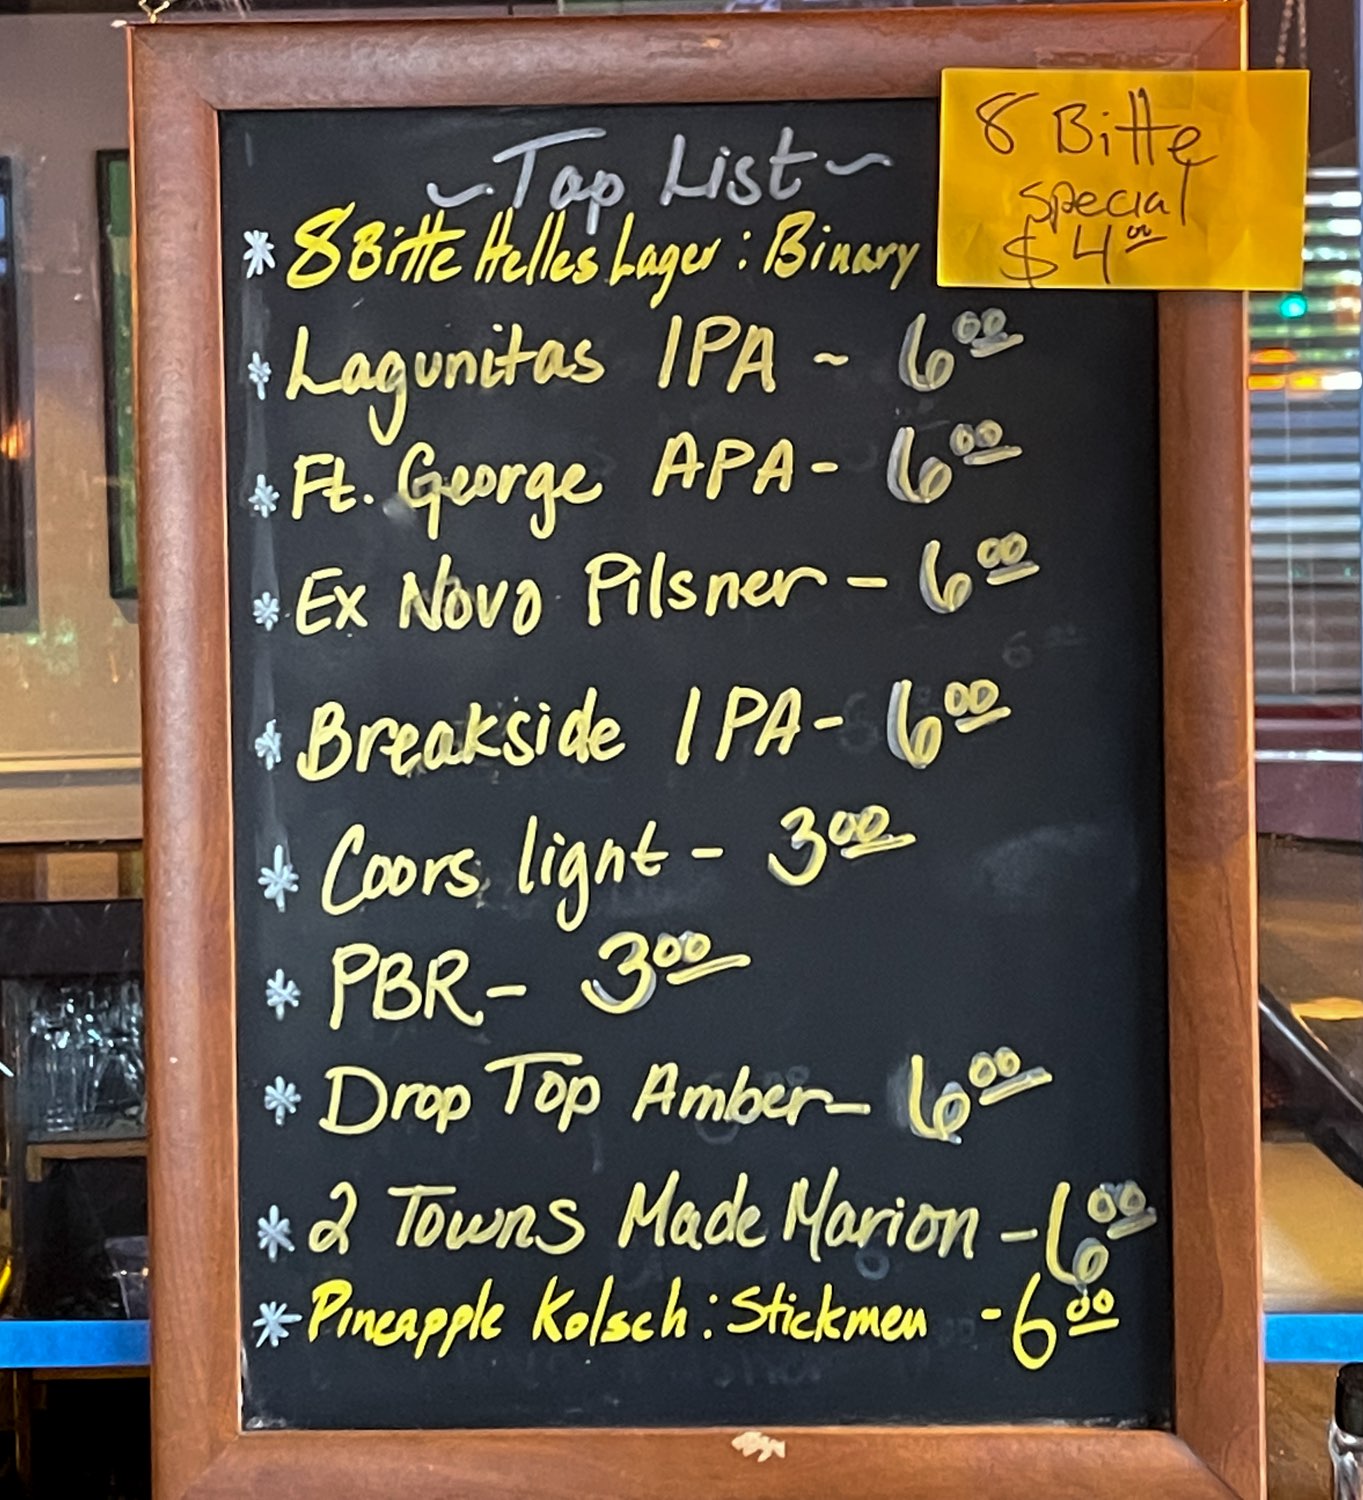 ~Tap List~
8 Bitte
Special
$4.00
* 8 Bitte Helles Lager: Binary
* Lagunitas IPA ~ 6.00
* Ft. George APA - 6.00
* Ex Novo Pilsner - 6.00
* Breakside IPA - 6.00
* Coors light - 3.00
* PBR - 3.00
* Drop Top Amber - 6.00
* 2 Towns Made Marion - 6.00
* Pineapple Kolsch: Stickmen - 6.00